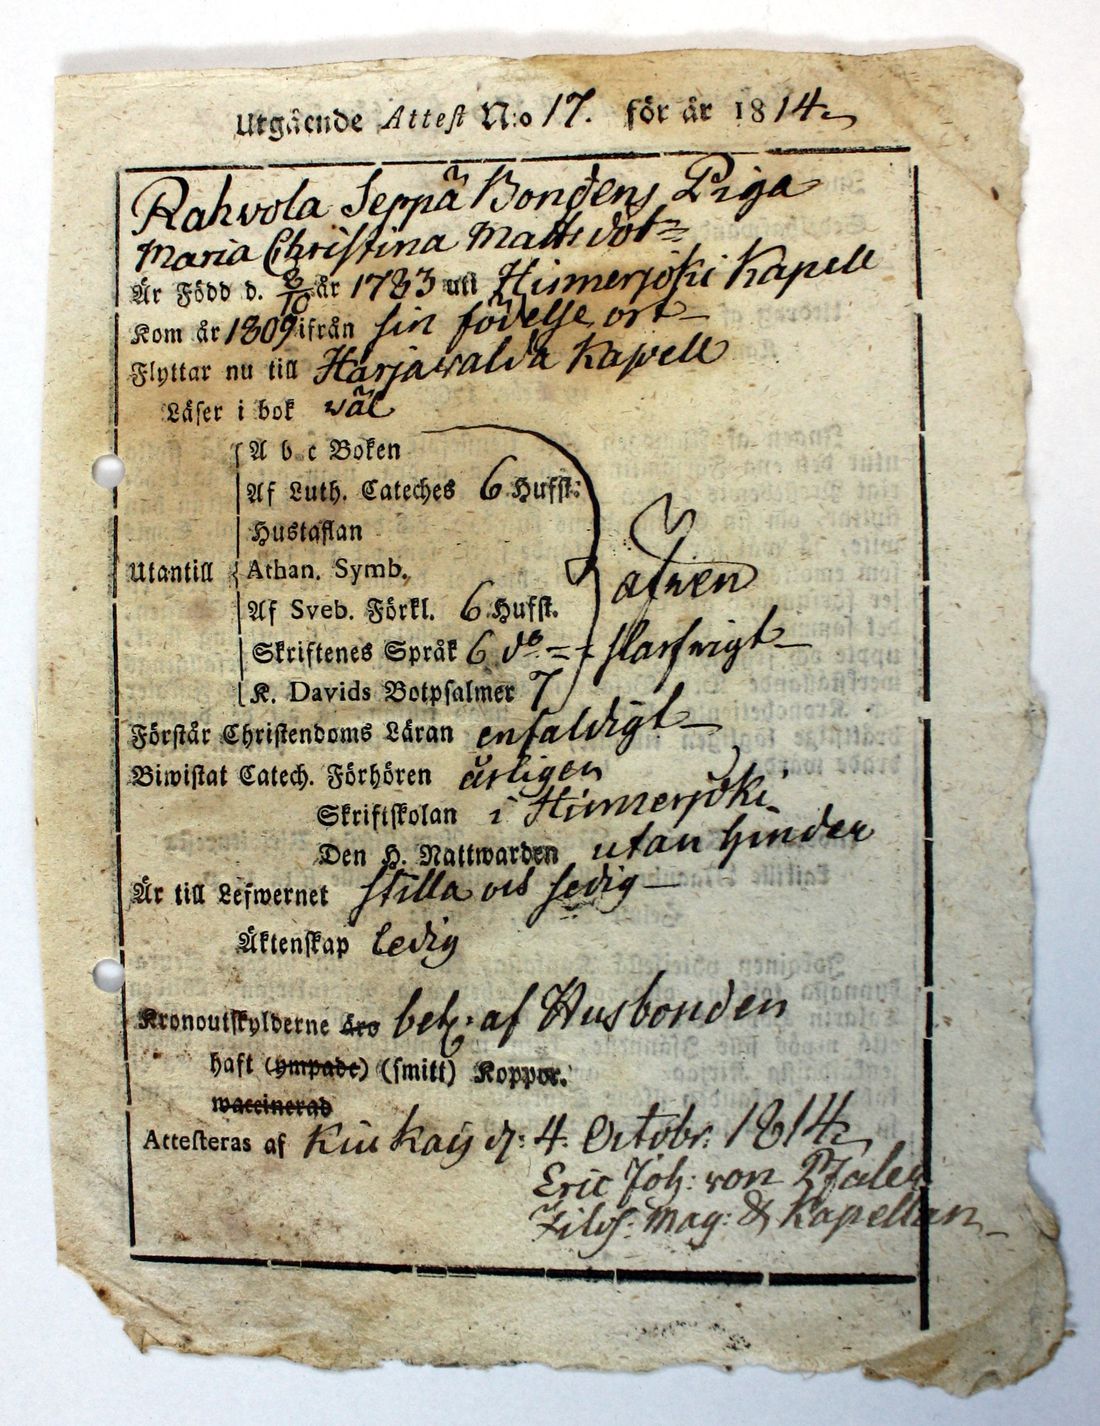 Utgående Attest N:o 17. för år 1814
Rahvola Seppä Bondens Piga
Maria Christina Mattsdot=
Är Född d. 8/10 år 1783 uti Hinnerjoki Kapell
Kom år 1809 ifrån sin födelse ort
Flyttar nu till Harjawalda Kapell
Läser i bok wäl
A b c Boken
Af Luth. Cateches 6 Hufst:
Hustaflan
Utantill Athan. Symb. äfwen
Af Sveb. Förkl. 6 Hufst.
Skriftenes Språk 6 do = slarfwigt
K. Davids Botpsalmer 7
Förstår Christendoms Läran enfaldigt
Biwistat Catech. Förhören årligen
Skriftskolan i Hinnerjoki
Den H. Nattwarden utan hinder
Är till Lefwernet stilla och sedig
Äktenskap ledig
Kronoutskylderne äro bet. af Husbonden
haft (ympade) (smitt) Koppor.
waccinerad
Attesteras af Kiukais d: 4. Octobr: 1814
Eric Joh: von Pfaler
Filos: Mag: & Kapellan